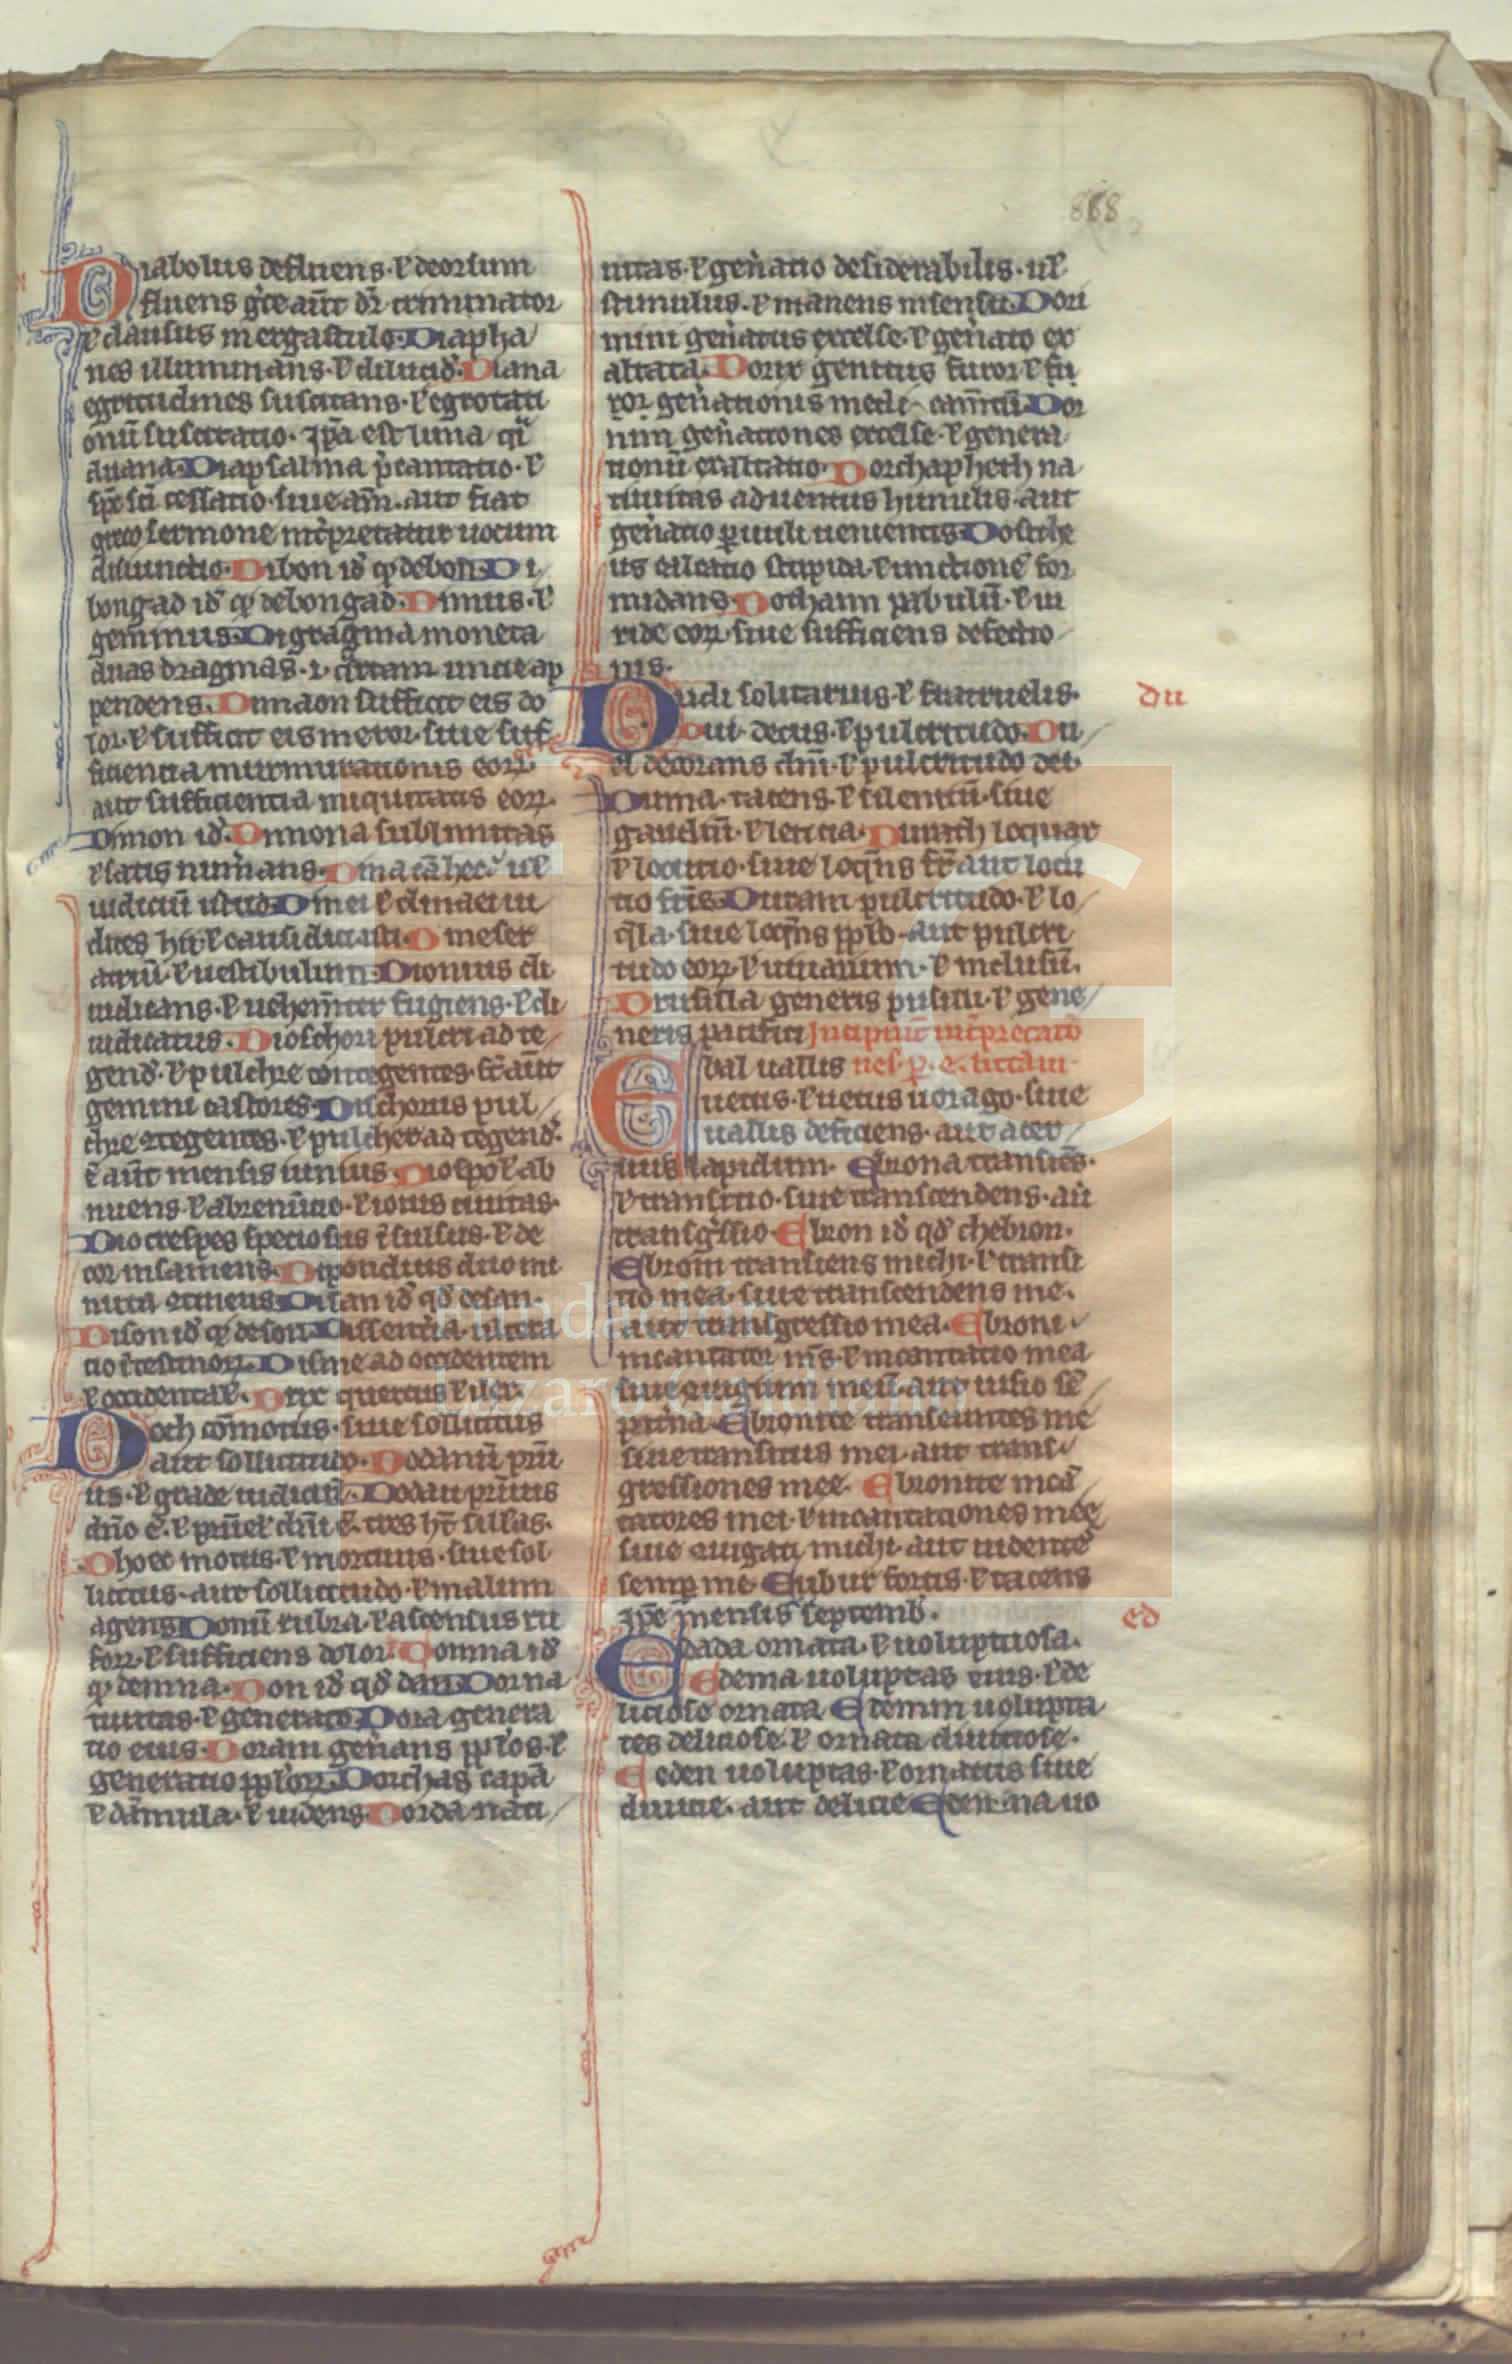 868
Diabolus defluens. ł deorsum
fluens gͬce aūt dr̄ criminator
ł clausus in ergastulo. Diapha
nes illuminans. ł dilucid᷒. Diana
egritudines suscitans. ł egrotati
onū suscitatio. ip̄a est luna qͣi
duana. Diapsalma p̄cantatio. ł
sp̄c sc̄i cessatio siue am̄. aut fiat
greco sermone int̄pretatur uocum
adiunctio. Dibon id᷒ qd̓ debon. Di
bongad id᷒ qd̓ debongad. Dimus. ł
geminus. Digragma moneta
duas dragmas. i. qͣrtam uncie ap
pendens. Dimaon sufficit eis do
lor. ł sufficit eis meror. siue suf
ficientia murmurationis eoꝝ.
aut sufficientia iniquitatis eoꝝ.
Dimon id᷒. Dimona sublimitas
ł satis num̄ans. Dina cā hec. uł
iudiciū istud. Dinei ł dinaei iu
dices hii. ł causidici isti. Dineser
atriū. ł uestibulum. Dionius di
iudicans. ł uehem̄ter fugiens. ł di
iudicatus. Dioschori pulcri ad te
gend᷒. ł pulchre contegentes. st̄ aūt
gemini castores. Dischorus pul
chre ꝯtegentes. ł pulcher ad tegend᷒.
ē aūt mensis iunius. Diospoł ab
nuens. ł abrenūtio. ł iouis ciuitas.
Diotrespes speciosus īsulsus. ł de
cor insaniens. Dipondius duo mi
nuta ꝯtinens. Disan id᷒ qd̓ desan.
Dison id᷒ qd̓ deson. Dissenteria ulcera
tio ītestinoꝝ. Disme ad occidentem
ł occidentał. Drix quercus ł ilex
Doch cōmotus. siue sollicitus
aut sollicitudo. Dodanū prīn
us. ł grade iudiciū. Dodau prinus
dn̄o ē. ł pr̄uel dn̄i ē. tres hͭ sillas.
Dhoec motus. ł mortuus. siue sol
licitus. aut sollicitudo. ł malum
agens. Domū rubra. ł ascensus ru
foꝝ. ł sufficiens dolor. Domna id᷒
qd̓ demna. Don id᷒ qd̓ dan. Dor na
tiuitas. ł generatio. Dora genera
tio eius. Doram gen̄ans pp̄łos. ł
generatio pp̄łoꝝ. Dorchas capā
ł dāmula. ł uidens. Dorda nati
uitas. ł gen̄atio desiderabilis. uł
stimulus. ł manens in sensu. Dori
mini gen̄atus excelse. ł gen̄atio ex
altata. Dorix genitus furor. ł fu
ror gen̄ationis medi caminū. Dor
nim gen̄ationes excelse. ł genera
tionū exaltatio. Dorchapheth na
tiuitas aduentus humilis. aut
gen̄atio ꝑuuli uenientis. Dosithe
us calcatio stupida. ł unctione for
midans. Dothann pabulū. ł ui
ride eoꝝ. siue sufficiens defectio
nis.
Dudi solitarius. ł fuatruelis.
du
Dui decus. ł pulcritudo. Du
el decorans dm̄. ł pulcritudo dei.
Duma tacens. ł silentiū. siue
gaudiū. ł leticia. Dumch loquar
ł locutio. siue loqn̄s fr̄t aut locu
tio fr̄is. Duram pulcritudo. ł lo
q̄la. siue loqn̄s pp̄lo. aut pulcri
tudo eoꝝ. ł uiuarium. ł inclusū.
Drusilla generis pusilli. ł gene
neris pacifici. Incipiūt int̄pretatō
nes. ꝑ. e. litt̄am.
Ebal uallis
uetus. ł uetus uorago. siue
uallis deficiens. aut acer
uus lapidum. Ebrona transiēs.
ł transitio. siue transcendens. aū
transgͬssio. Ebron id᷒ qd̓ chebron.
Ebrom̄ transiens michi. ł transi
tio mea. siue transcendens me.
aut transgressio mea. Ebroni
incantator mīs. ł incantatio mea
siue euigiłm meū. aut uisio sē
pit̄na. Ebronite transeuntes me
siue transitus mei. aut trans
gressiones mee. Ebronite incā
tatores mei. ł incantationes mee
siue euigati michi. aut uidente
semꝑ me. Eubur fortis. ł tacens
ip̄e mensis septemb᷒.
ed
Edada ornata. ł uoluptuosa.
Edema uoluptas eius. ł de
liciose ornata. Edemim uolupta
tes deliciose. ł ornata diuitiose.
Eeden uoluptas. ł ornatus siue
diuitie. aut delicie. Edenna uo